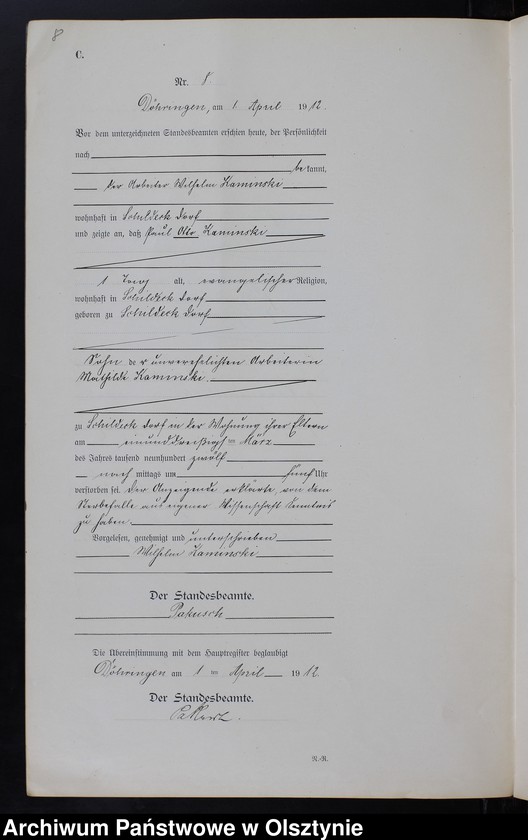 8
C.
Nr. 8
Döhringen, am 1 April 1912.
Vor dem unterzeichneten Standesbeamten erschien heute, der Persönlichkeit
nach
bekannt,
der Arbeiter Wilhelm Kaminski
wohnhaft in Schildeck Dorf
und zeigte an, daß Paul Otto Kaminski
1 Tag alt, evangelischer Religion,
wohnhaft in Schildeck Dorf
geboren zu Schildeck Dorf
Sohn der unverehelichten Arbeiterin
Mathilde Kaminski
zu Schildeck Dorf in der Wohnung ihrer Eltern
am einunddreißigsten März
des Jahres tausend neunhundert zwölf
nachmittags um fünf Uhr
verstorben sei. Der Anzeigende erklärte, von dem
Sterbefalle aus eigener Wissenschaft Kenntnis
zu haben.
Vorgelesen, genehmigt und unterschrieben
Wilhelm Kaminski
Der Standesbeamte.
Die Übereinstimmung mit dem Hauptregister beglaubigt
Döhringen am 1 ten April 1912
Der Standesbeamte.
N.-R.
Archiwum Państwowe w Olsztynie